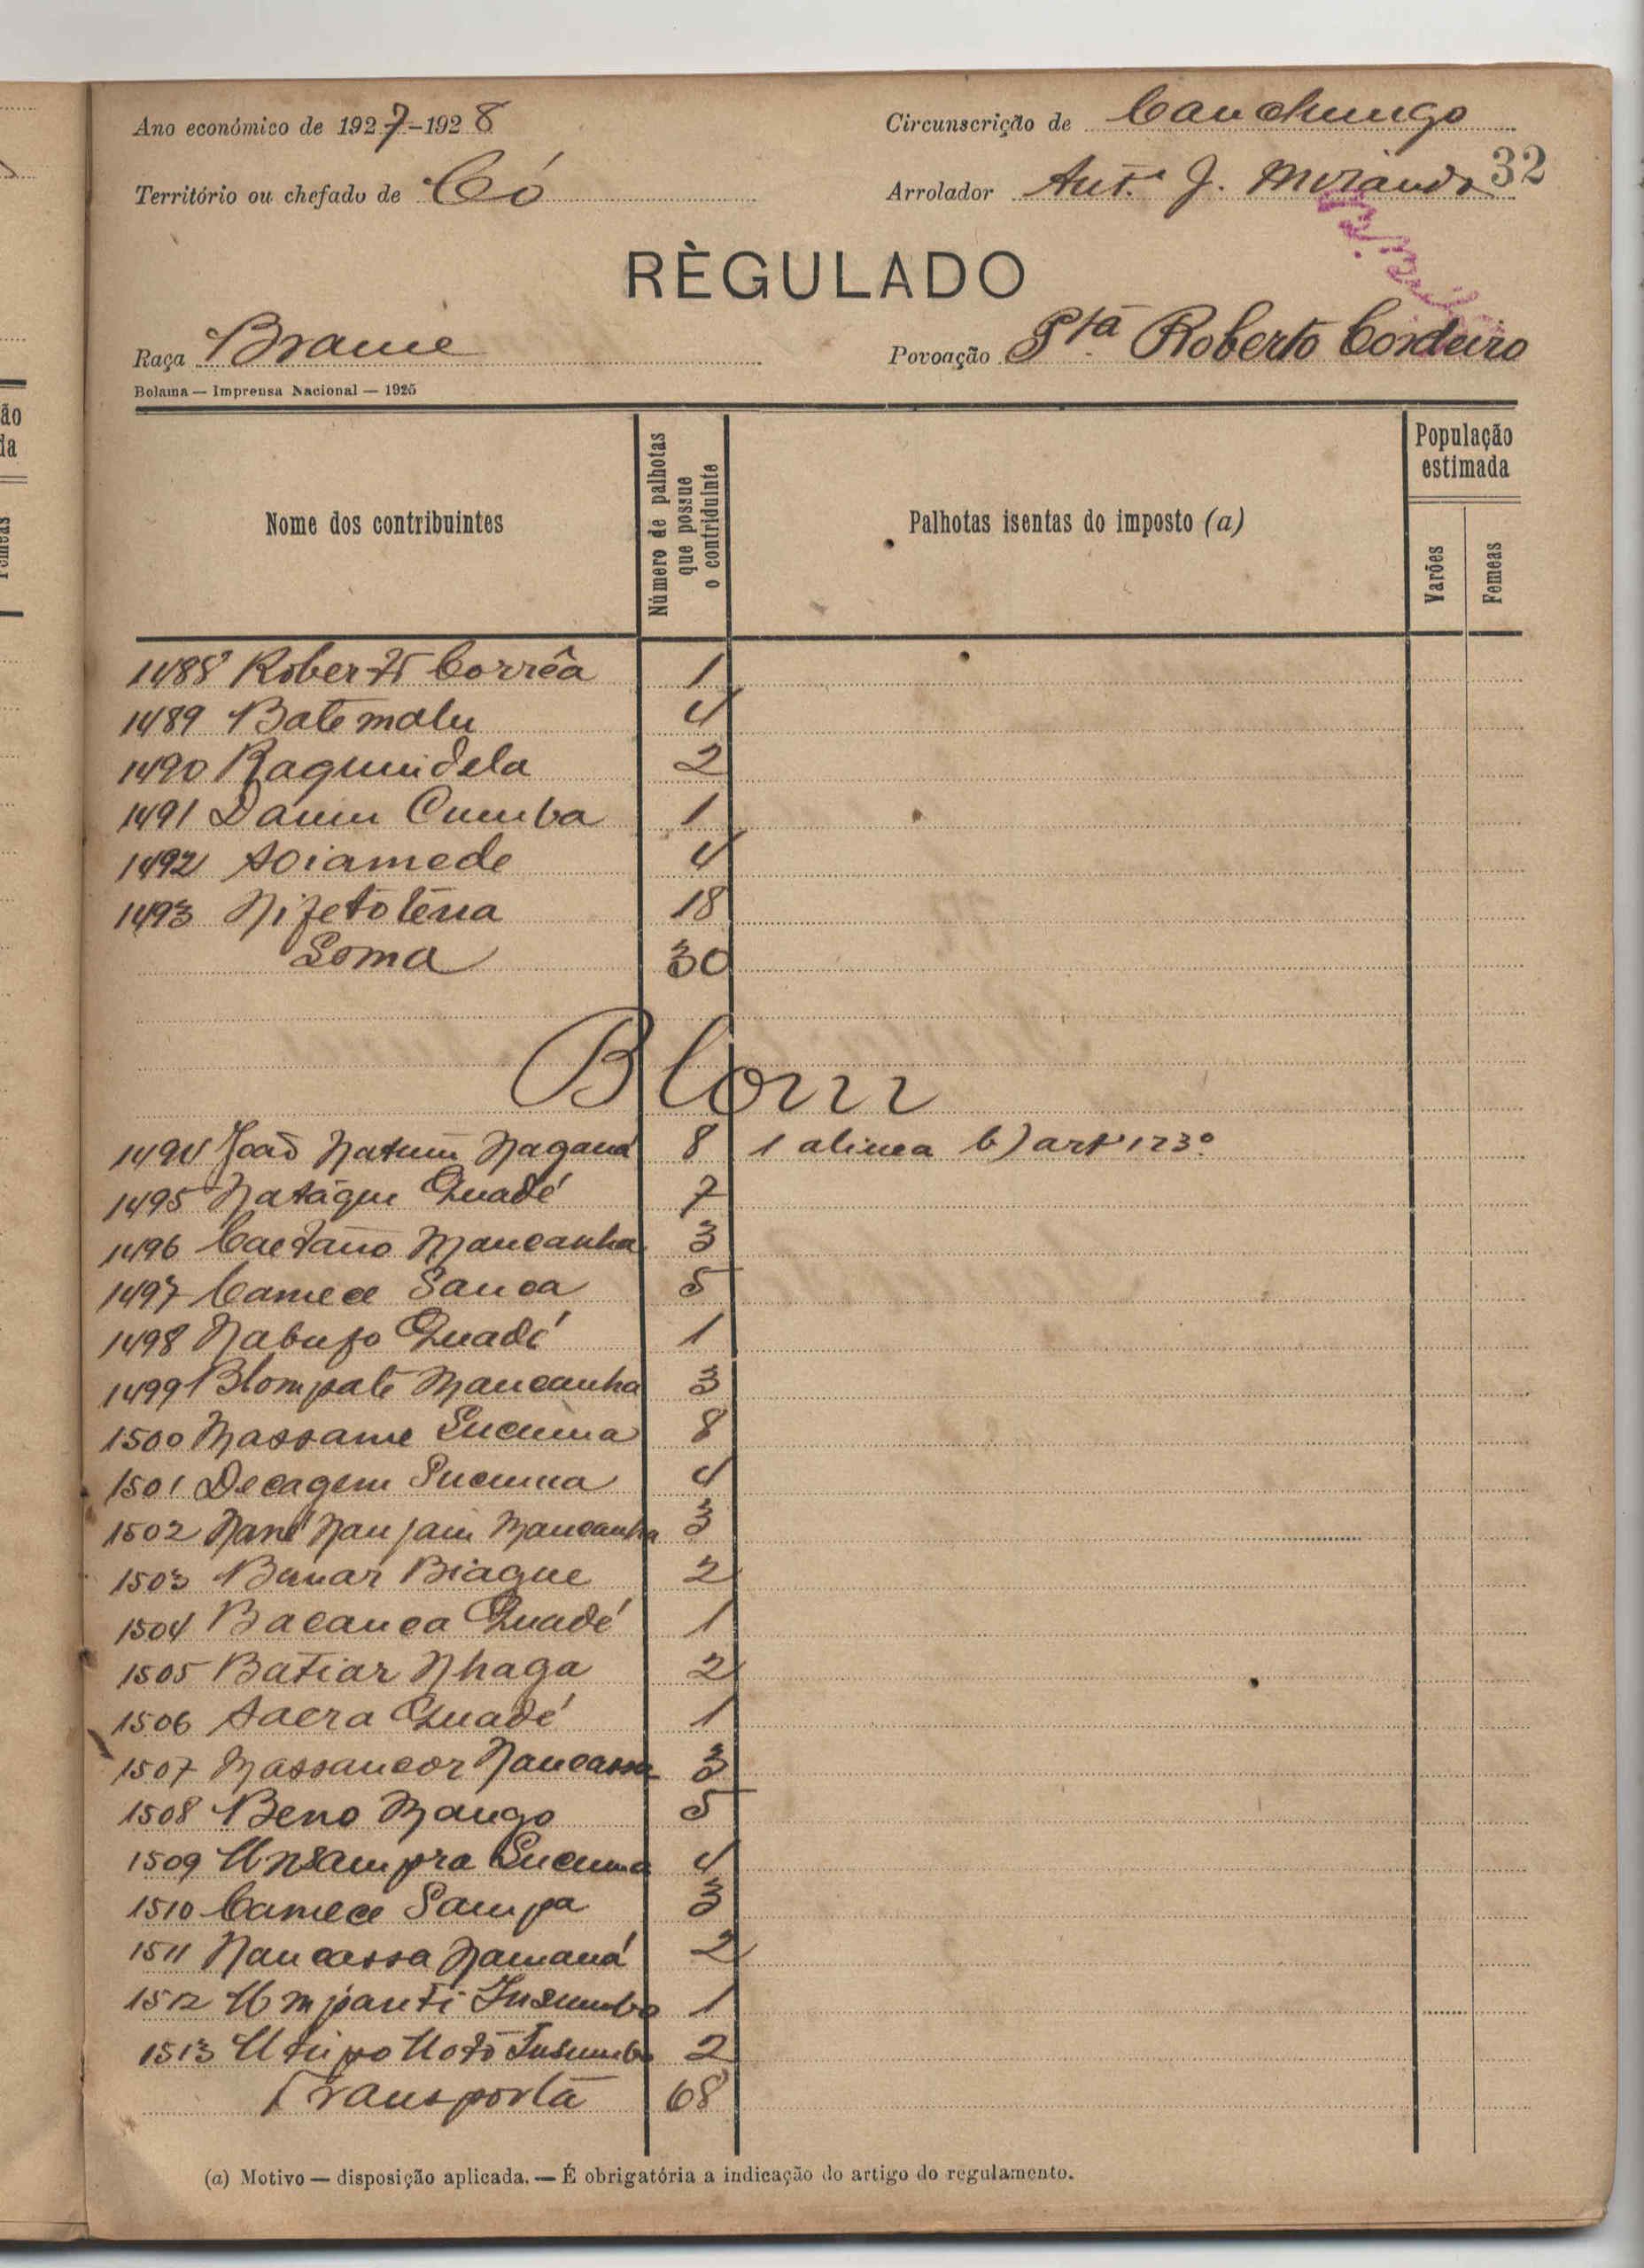 Ano económico de 1927-1928
Circunscrição de Canchungo
32
Território ou chefado de Có
Arrolador Antº. J. Miranda
RÈGULADO
Raça Brame
Povoação Ptª Roberto Cordeiro
Bolama — Imprensa Nacional — 1925
Nome dos contribuintes
Número de palhotas
que possue
o contriduinte
Palhotas isentas do imposto (a)
População
estimada
Varões
Femeas
1488 Roberto Corrêa 1
1489 Batemalu 4
1490 2
1491 Cumba 1
1492 4
1493 18
Soma 30
Blom
1494 João Natum Nagana 8 1 alinea b) art 123º
1495 Natáque Quadé 7
1496 Caetano Mancanha 3
1497 Camece Sanca 5
1498 Nabufo Quadé 1
1499 Blompate Mancanha 3
1500 Massame Sucuma 8
1501 Decagem Sucuma 4
1502 Nané Nanjam Mancanha 3
1503 Biague 2
1504 Bacanca Quadé 1
1505 Batiar Nhaga 2
1506 Sacra Quadé 1
1507 Massancor Nancassa 3
1508 Beno Mango 5
1509 Unsampra Sucuma 4
1510 Camece Sampa 3
1511 Nancassa Namaná 2
1512 Umpanti Insumbo 1
1513 Insumbo 2
Transporta 68
(a) Motivo — disposição aplicada. — É obrigatória a indicação do artigo do regulamento.